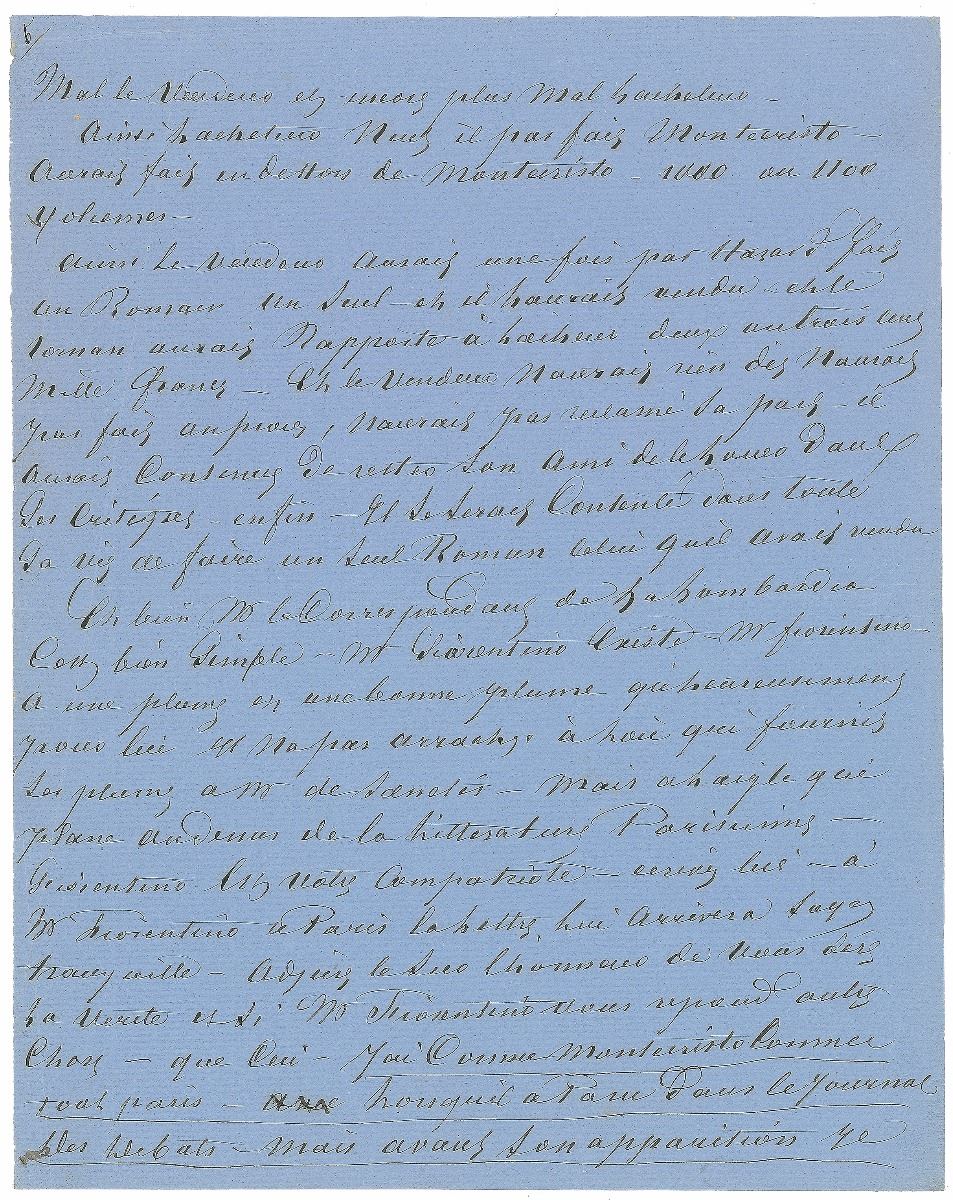 6/
Mal le vendeur et encore plus mal l'acheteur –
Ainsi l'acheteur neut il pas fait Montecristo –
Aurait fait en dehors de Montecristo – 1000 ou 1100
Volumes –
Ainsi le vendeur aurait une fois par Hazard fait
un Roman un seul – et il l'aurait vendu – et le
roman aurait Rapporté à l'acheteur deux ou trois cent
Mille francs – Et le vendeur Naurait rien dit Naurait
pas fait un procès, Naurait pas réclamé sa part – il
aurait Consenti de rester son Ami de le louer dans
ses Critiques – enfin – Il se serait Contenté dans toute
sa vie de faire un seul Roman celui quil avait vendu
Eh bien Mr le Correspondant de La Lombardia
Cest bien Simple – Mr Fiorentino Existe – Mr fiorentino
a une plume et une bonne plume qu'heureusement
pour lui Il Na pas arrachée à l'oie qui fournit
ses plumes a Mr de – Mais a l'aigle qui
plane au dessus de la Littérature Parisienne –
Fiorentino Est votre Compatriote – ecrivez lui – à
Mr Fiorentino à Paris la lettre lui Arrivera soyez
tranquille – Adjurez le sur l'honneur de vous dire
La Verité et si Mr Fiorentino vous repond autre
Chose – que Ceci – J'ai Connu Montecristo Comme
tout paris – Lorsquil a Paru Dans le Journal
Des Debats – Mais avant son apparition je